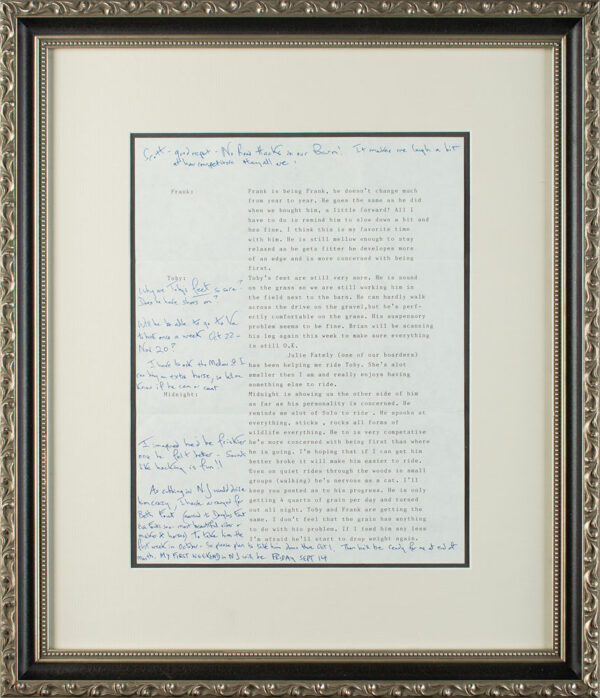 good report - No
It makes me laugh a bit
at how competitive they all are!
Frank: Frank is being Frank, he doesn't change much
from year to year. He goes the same as he did
when we bought him, a little forward! All I
have to do is remind him to slow down a bit and
hes fine. I think this is my favorite time
with him. He is still mellow enough to stay
relaxed as he gets fitter he developes more
of an edge and is more concerned with being
first.
Toby: Toby's feet are still very sore. He is sound
on the grass so we are still working him in
the field next to the barn. He can hardly walk
across the drive on the gravel,but he's perf-
ectly comfortable on the grass. His suspensory
problem seems to be fine. Brian will be scanning
his leg again this week to make sure everything
is still O.K.
Julie (one of our boarders)
has been helping me ride Toby. She's alot
smaller then I am and really enjoys having
something else to ride.
Why are Toby's feet so sore?
Does he have shoes on?
Will he be able to go to Va
once a week Oct 22 -
Nov 20?
I have to
an extra horse, so let me
know if he can or cant
Midnight: Midnight is showing us the other side of him
as far as his personality is concerned. He
reminds me alot of Solo to ride . He spooks at
everything, sticks , rocks all forms of
wildlife everything. He to is very competative
he's more concerned with being first than where
he is going. I'm hoping that if I can get him
better broke it will make him easier to ride.
Even on quiet rides through the woods in small
groups (walking) he's nervous as a cat. I'll
keep you posted as to his progress. He is only
getting 4 quarts of grain per day and turned
out all night. Toby and Frank are getting the
same. I don't feel that the grain has anything
to do with his problem. If I feed him any less
I'm afraid he'll start to drop weight again.
I imagined he'd be friskier
once he felt better - Sounds
like hacking is fun!!
As cubbing in N.J would drive
him crazy, I have arranged for
Beth
most beautiful
to take him the
first week in October - So please plan to take him down then Oct 1. Then he'll be ready for me at end of
month. MY FIRST WEEKEND in N.J will be FRIDAY SEPT 14